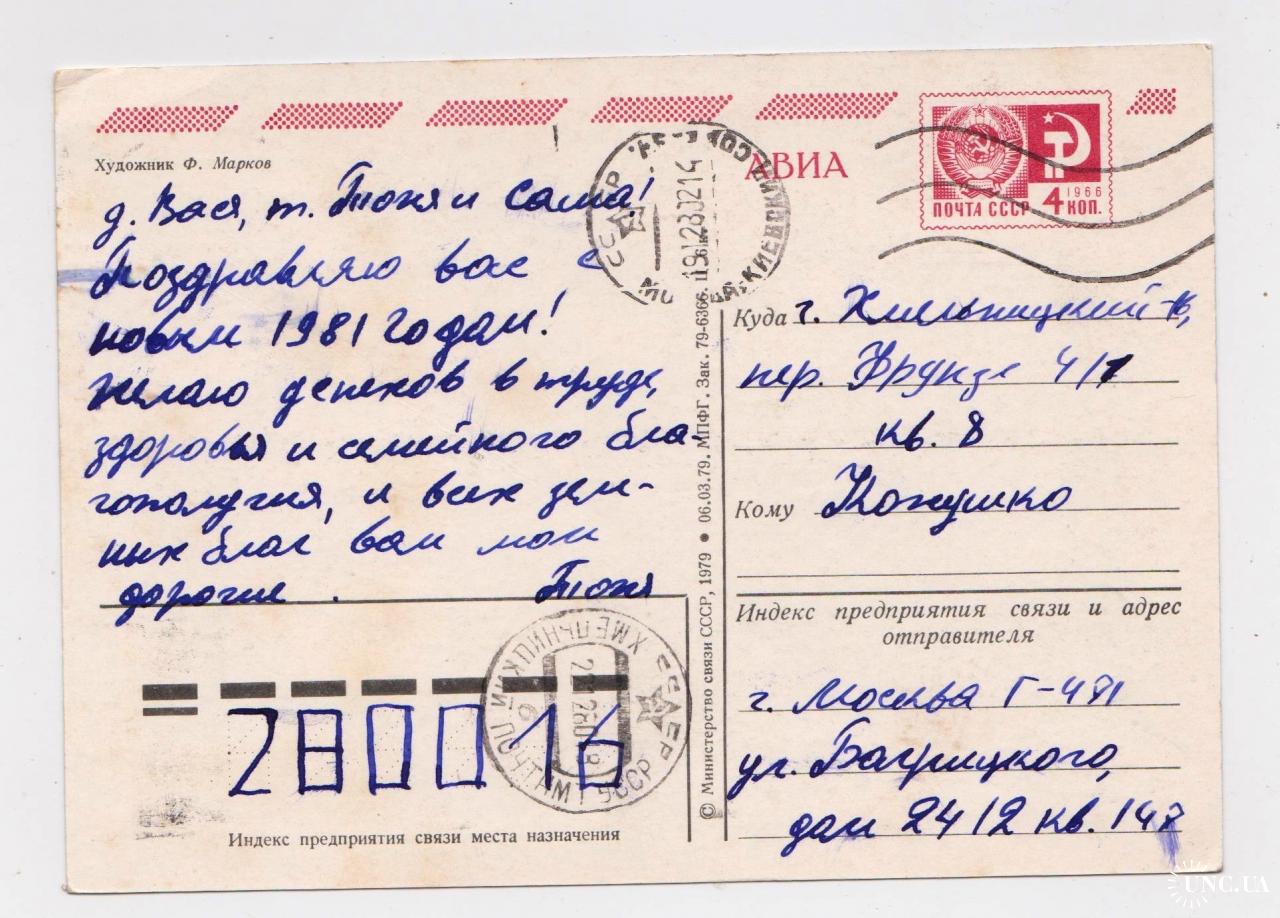 Художник Ф. Марков
АВИА
ПОЧТА СССР 4 КОП.
1966
д. Вася, т. Тоня и Саша!
Поздравляю вас с
новым 1981 годом!
Желаю успехов в труде,
здоровья и семейного бла-
гополучия, и всех зем-
ных благ вам мои
дорогие. Тоня
Куда г. Хмельницкий-16,
пер. Фрунзе 4/1
кв. 8
Кому Кожушко
Индекс предприятия связи и адрес
отправителя
г. Москва Г-471
ул. Багрицкого,
дом 24/2 кв. 147
280016
Индекс предприятия связи места назначения
© Министерство связи СССР, 1979 • 06.03.79. МПФГ. Зак. 79-6366. Ц. 6 к.
СССР 191280214
ХМЕЛЬНИЦКИЙ ПОЧТАМТ УССР
UNC.UA